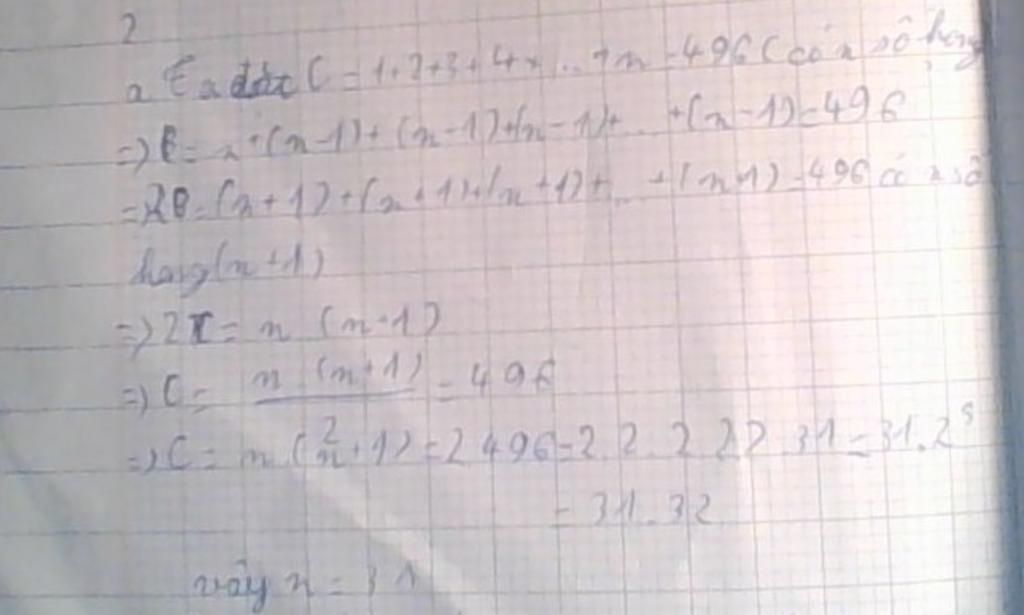 2
a Ta được C = 1+2+3+4+...+n = 496 (có n số hạng
=> C = n+(n-1)+(n-1)+(n-1)+...+(n-1)=496
=> 2C=(n+1)+(n+1)+(n+1)+...+(n+1)=496 có n số
hạng(n+1)
=> 2C = n (n+1)
=> C = n (n+1) / 2 = 496
=> C = n (n+1) = 2 496 = 2.2.2.2.2.31 = 31.2⁵
= 31.32
vậy n = 31